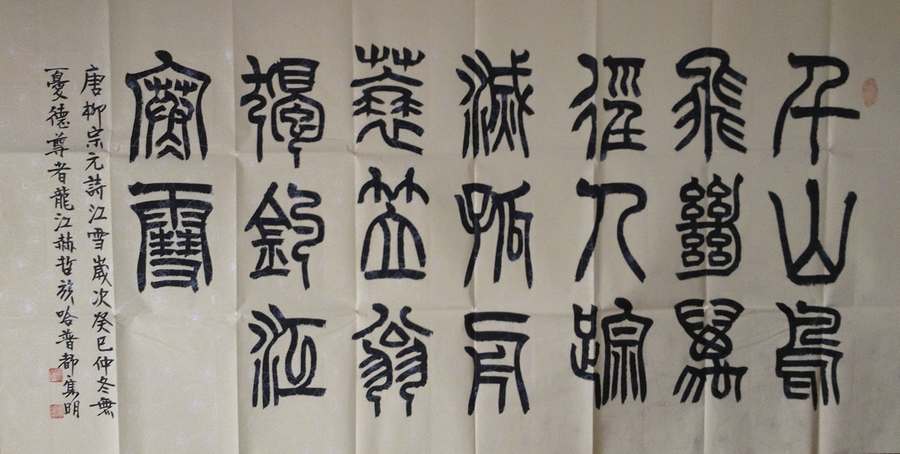 千山鳥
飛絕萬
徑人踪
滅孤舟
蓑笠翁
獨釣江
寒雪
唐柳宗元詩江雪歲次癸巳仲冬無
憂德尊者龍江赫哲族哈普都雋明